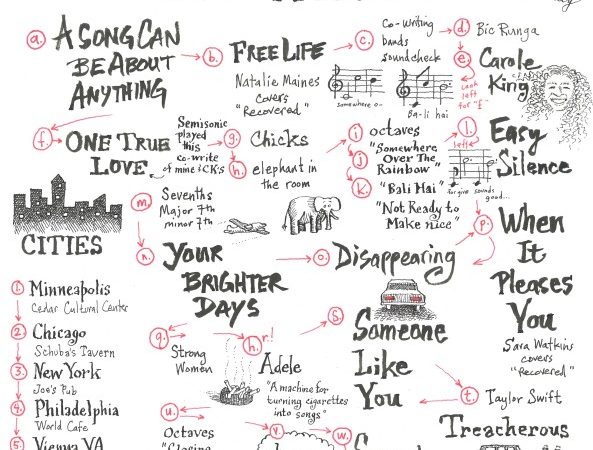 a.
A SONG CAN
BE ABOUT
ANYTHING
b.
FREE LIFE
Natalie Maines
covers
"Recovered"
c.
Co-writing
bands
soundcheck
somewhere o-
Ba-li hai
d.
Bic Runga
e.
look
left
for "E"
Carole
King
f.
ONE TRUE
LOVE
Semisonic
played
this
co-write
of mine & CK's
g.
Chicks
h.
elephant in
the room
i
j
k.
octaves
"Somewhere
Over The
Rainbow"
"Bali Hai"
"Not Ready to
Make nice"
l.
left
Easy
Silence
for give sounds
good...
m.
Sevenths
Major 7th
minor 7th
CITIES
n.
YOUR
BRIGHTER
DAYS
o.
Disappearing
p.
When
It
Pleases
You
Sara Watkins
covers
"Recovered"
1.
Minneapolis
Cedar Cultural Center
2.
Chicago
Schuba's Tavern
3.
New York
Joe's Pub
4.
Philadelphia
World Cafe
5.
Vienna VA
q.
Strong
Women
h.
r!
Adele
"A machine for
turning cigarettes
into songs"
s.
Someone
Like
You
t.
Taylor Swift
Treacherous
u.
Octaves
"Closing
v.
w.